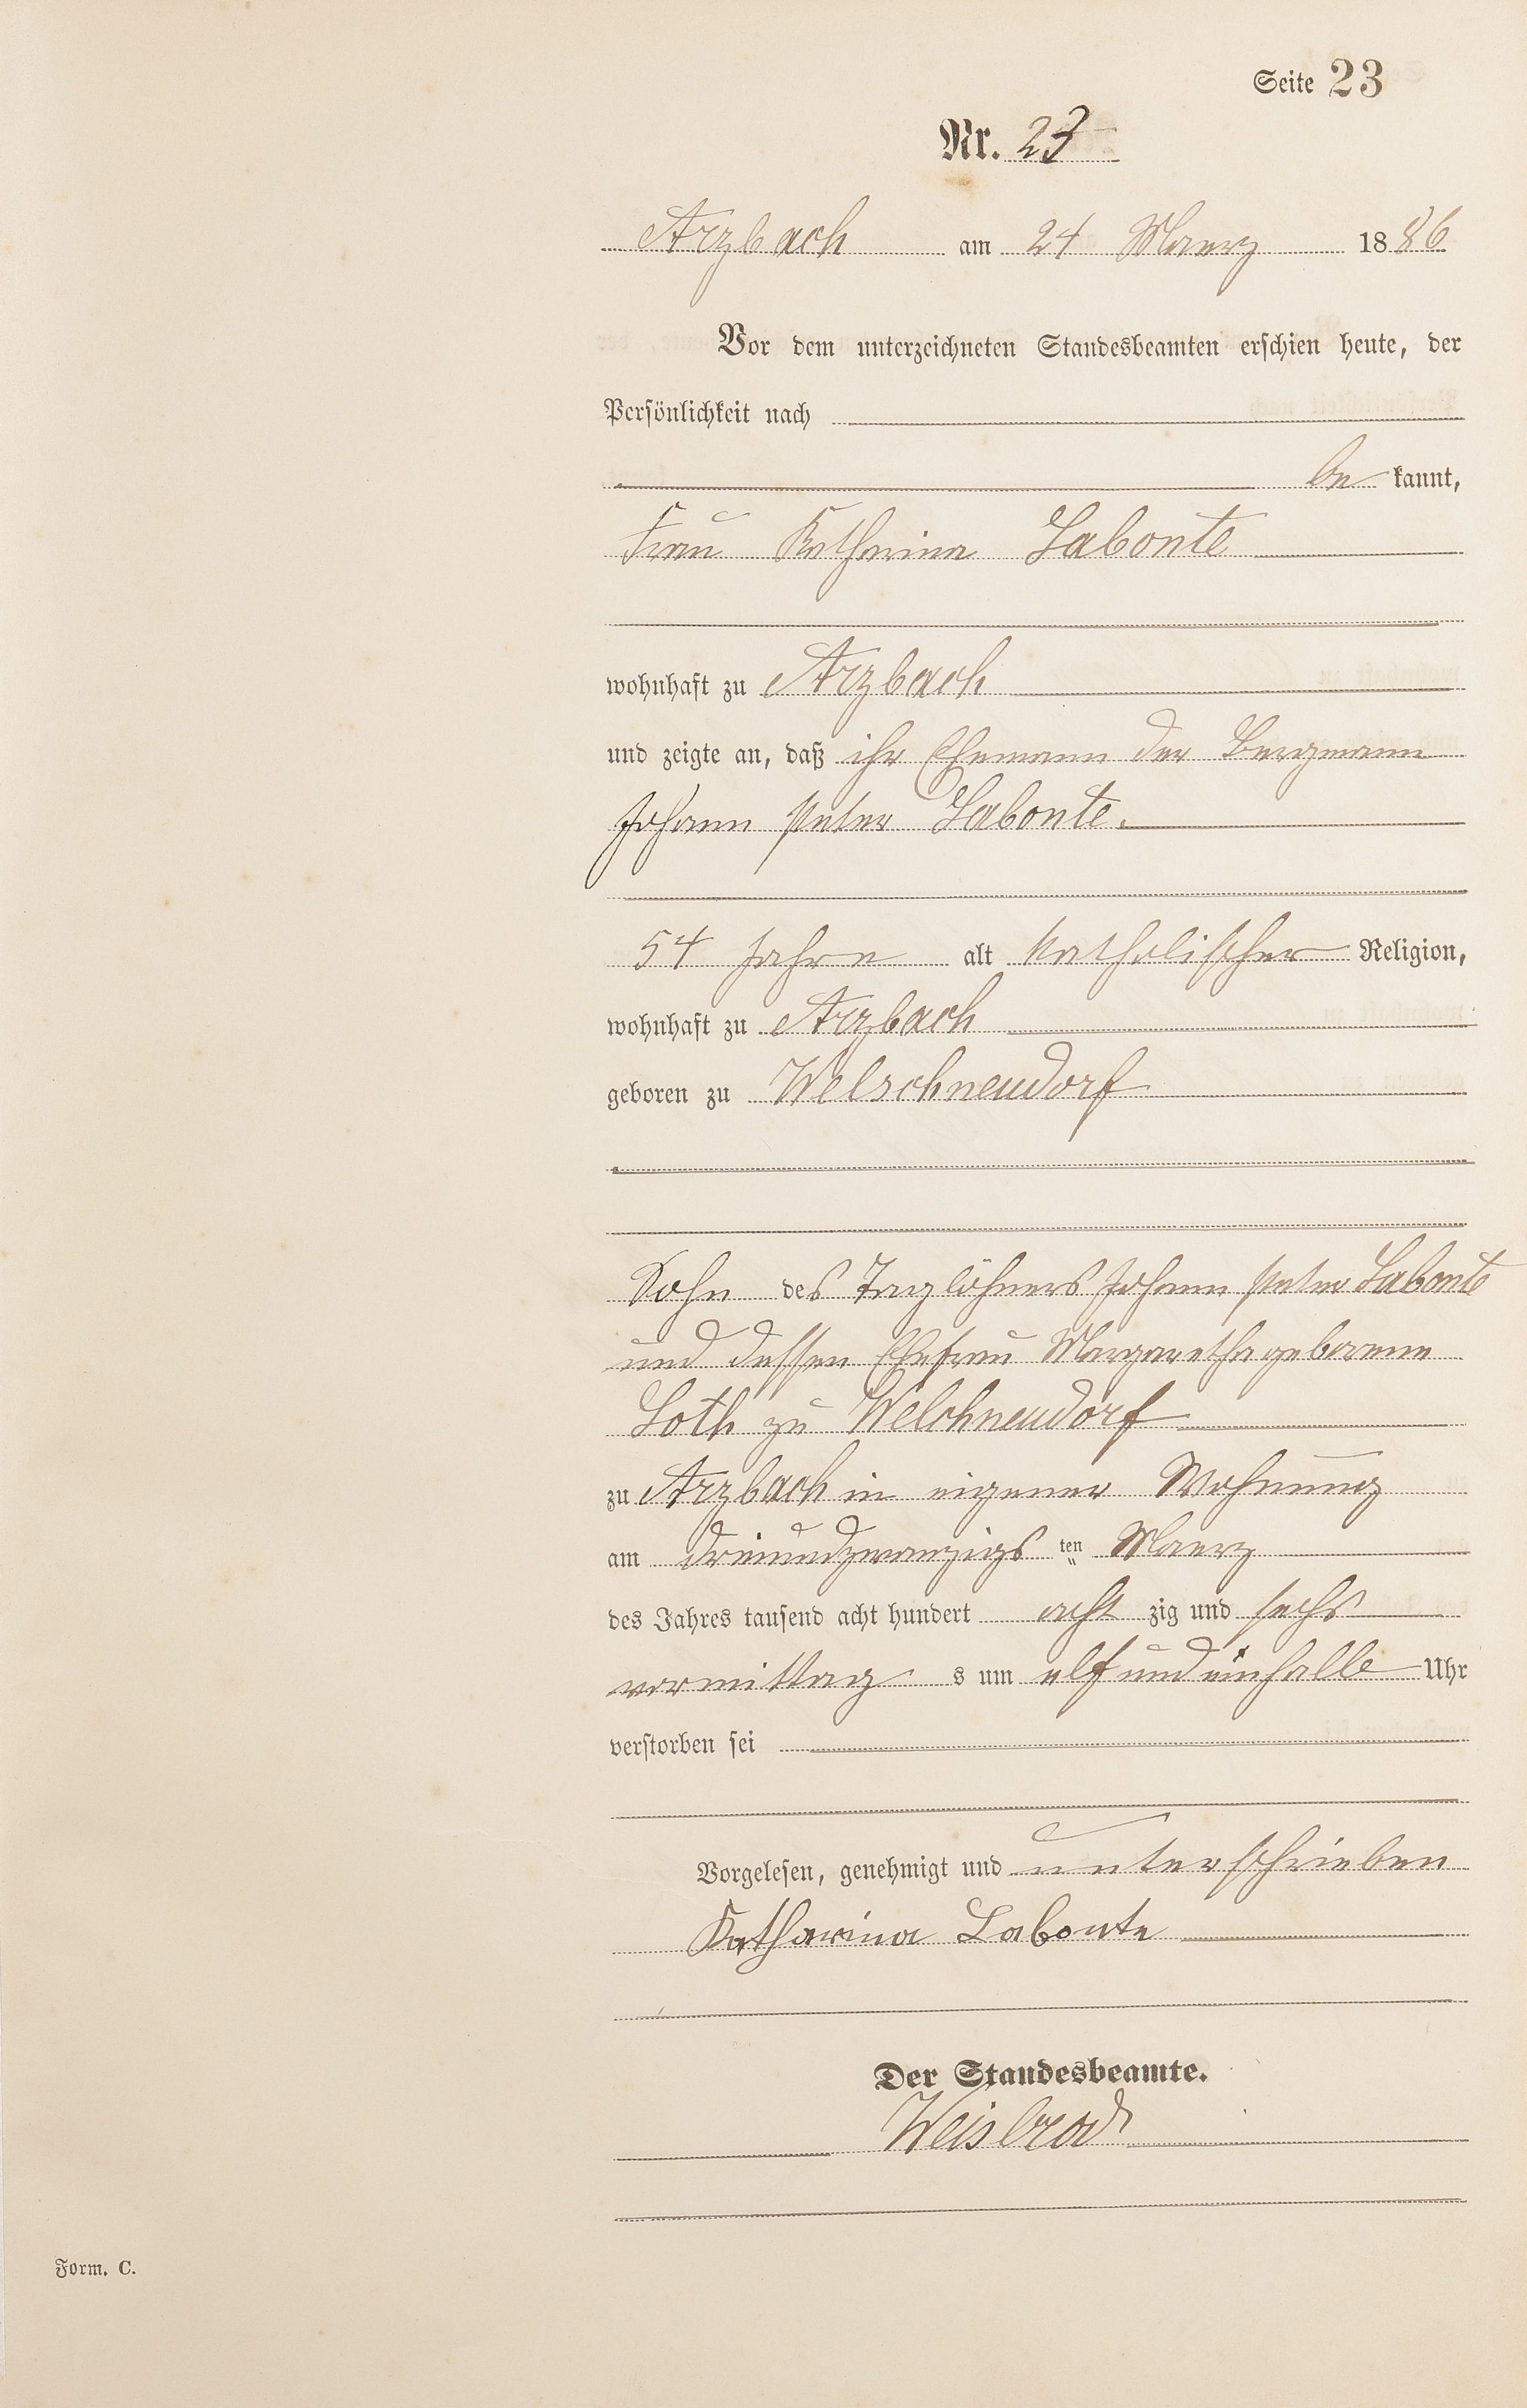 Seite 23
Nr. 23
Arzbach am 24 Maerz 1886
Vor dem unterzeichneten Standesbeamten erschien heute, der
Persönlichkeit nach
be kannt,
Frau Katharina Labonte
wohnhaft zu Arzbach
und zeigte an, daß ihr Ehemann der Bergmann
Johann Peter Labonte.
54 Jahre alt katholischer Religion,
wohnhaft zu Arzbach
geboren zu Welschneudorf
Sohn des Taglöhners Johann Peter Labonte
und dessen Ehefrau Margaretha geborene
Loth zu Welchneudorf
zu Arzbach in eigener Wohnung
am dreiundzwanzigs ten Maerz
des Jahres tausend acht hundert acht zig und sechs
vormittag s um elf und einhalb Uhr
verstorben sei
Vorgelesen, genehmigt und unterschrieben
Katharina Labonte
Der Standesbeamte.
Weisbrod
Form. C.